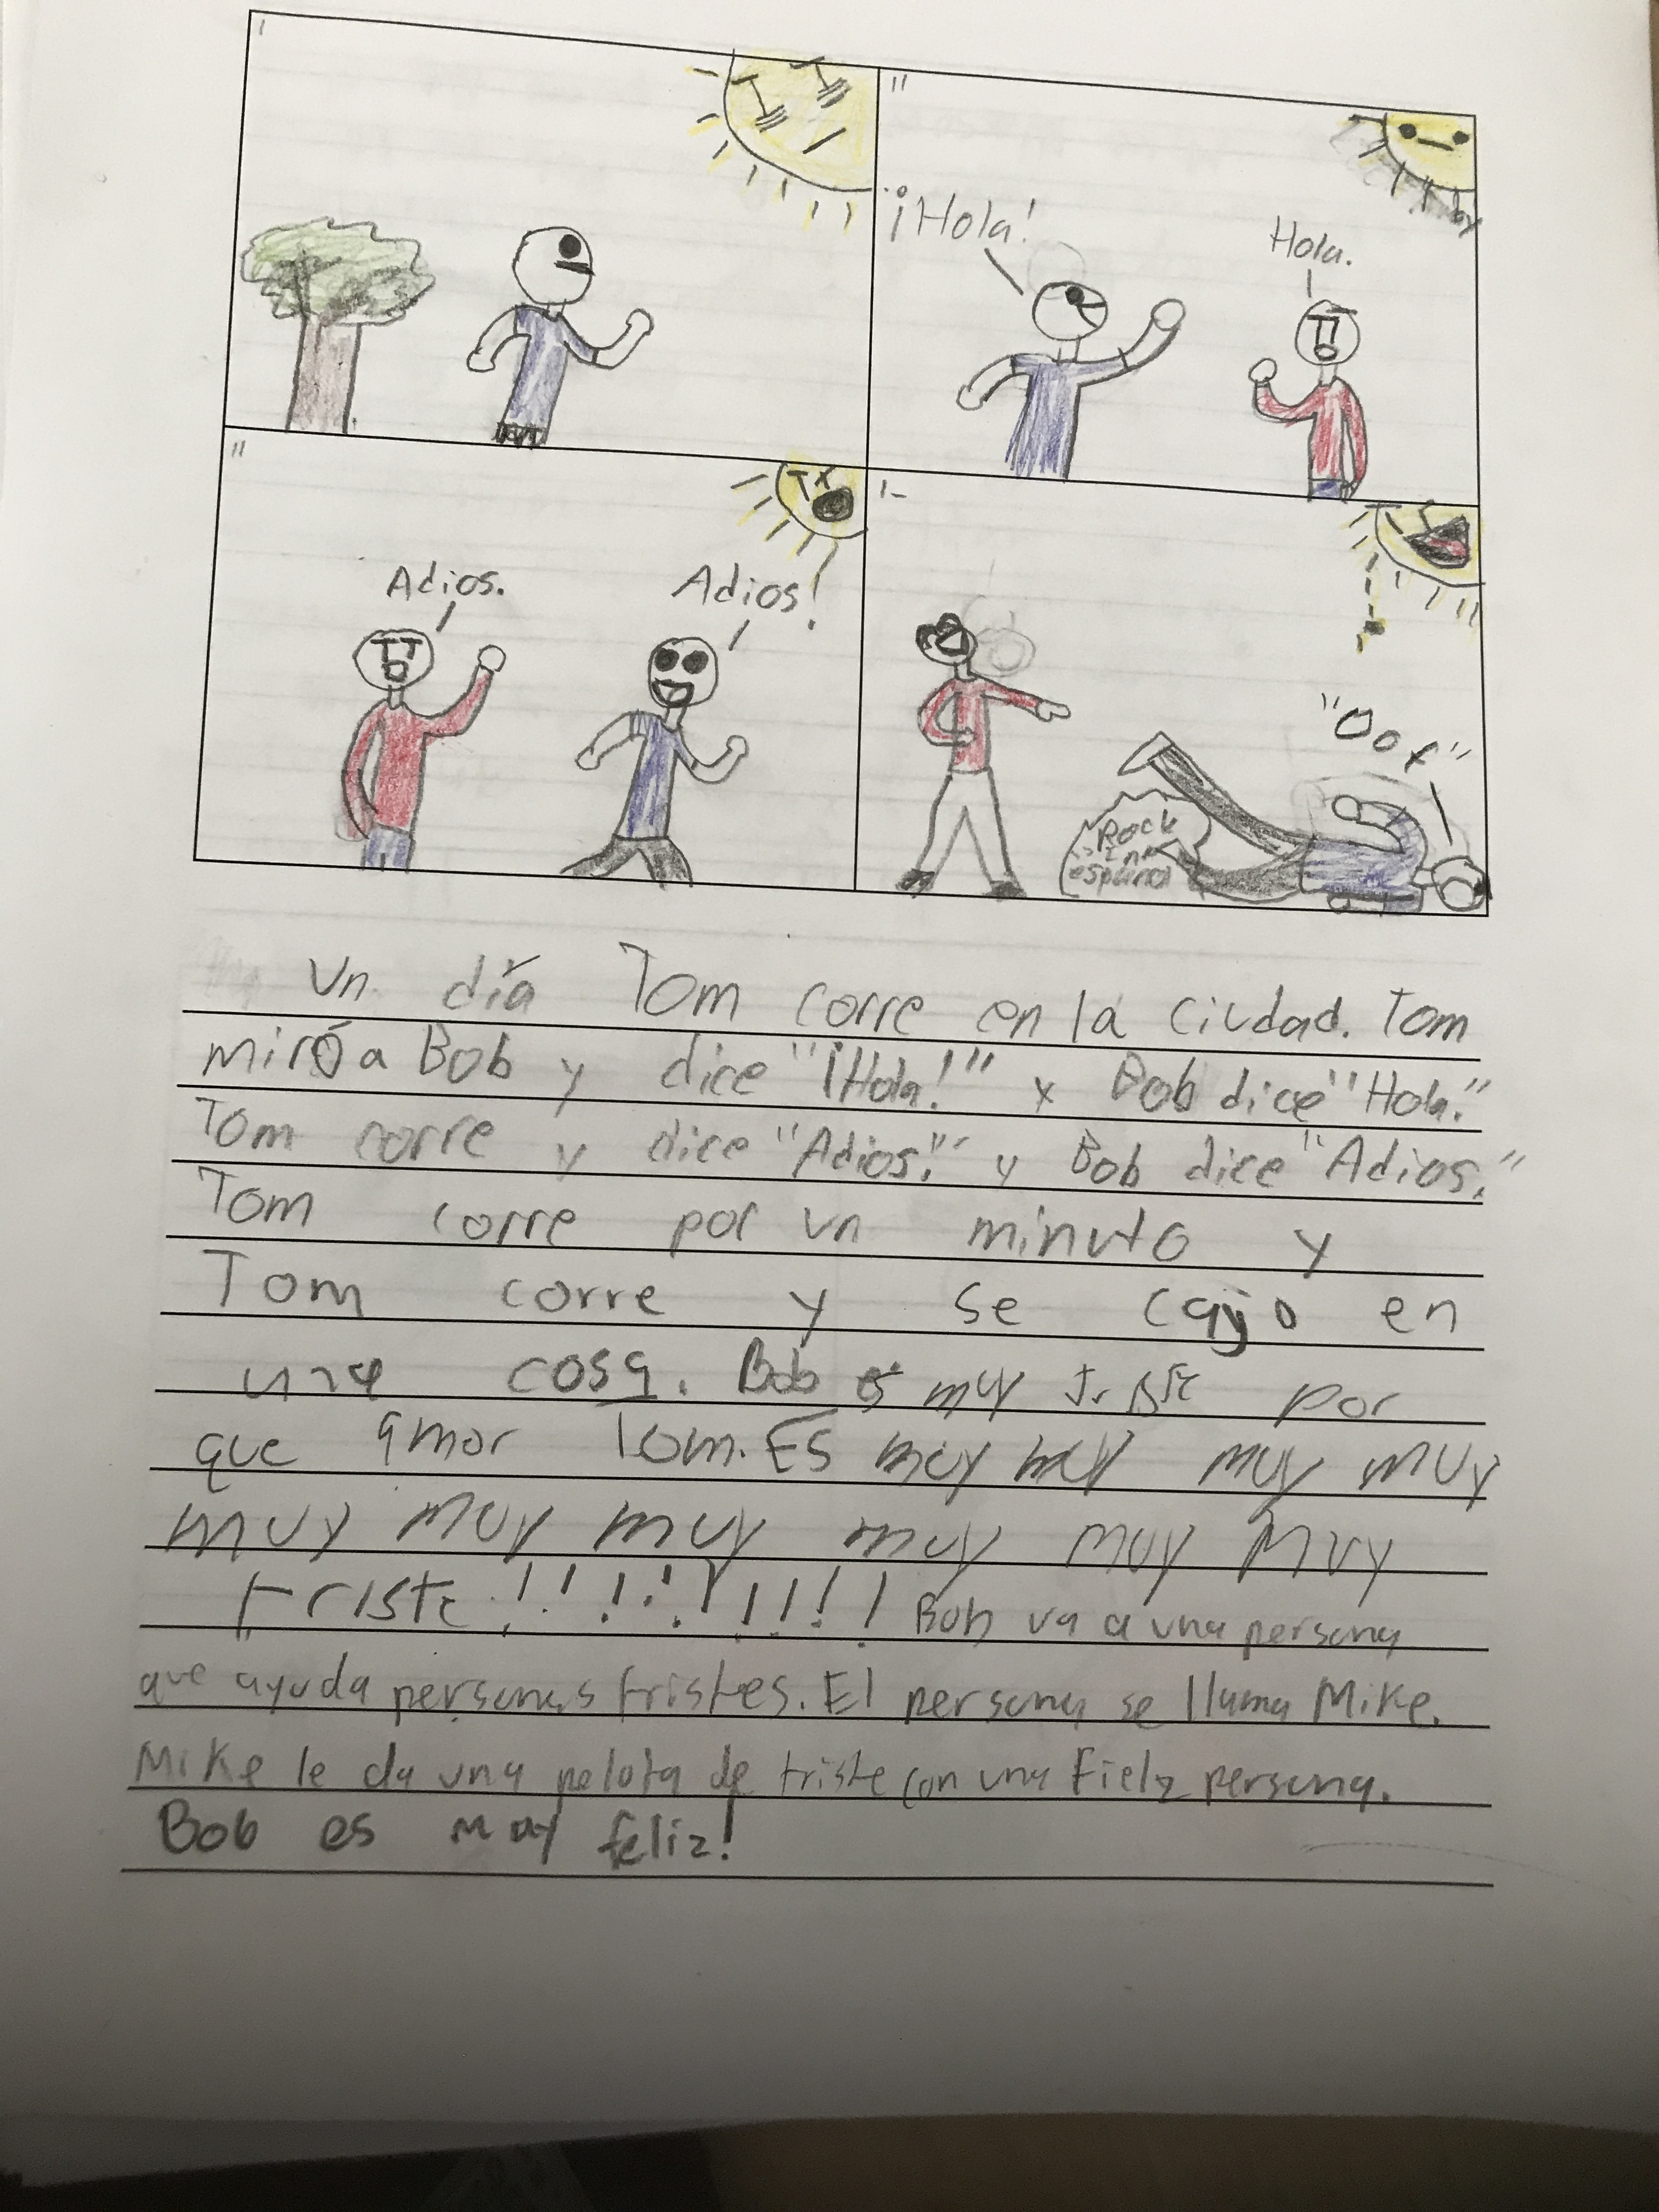 ¡Hola!
Hola.
Adios.
Adios!
"Oof"
Rock
in
español
Un día Tom corre en la ciudad. Tom
miró a Bob y dice "¡Hola!" y Bob dice "Hola."
Tom corre y dice "Adios!" y Bob dice "Adios."
Tom corre por un minuto y
Tom corre y se cayo en
una cosa. Bob es muy triste por
que amor Tom. Es muy muy muy muy
muy muy muy muy muy muy
triste!!!!!!!!! Bob va a una persona
que ayuda personas tristes. El persona se llama Mike.
Mike le da una pelota de triste con una persona.
Bob es muy feliz!